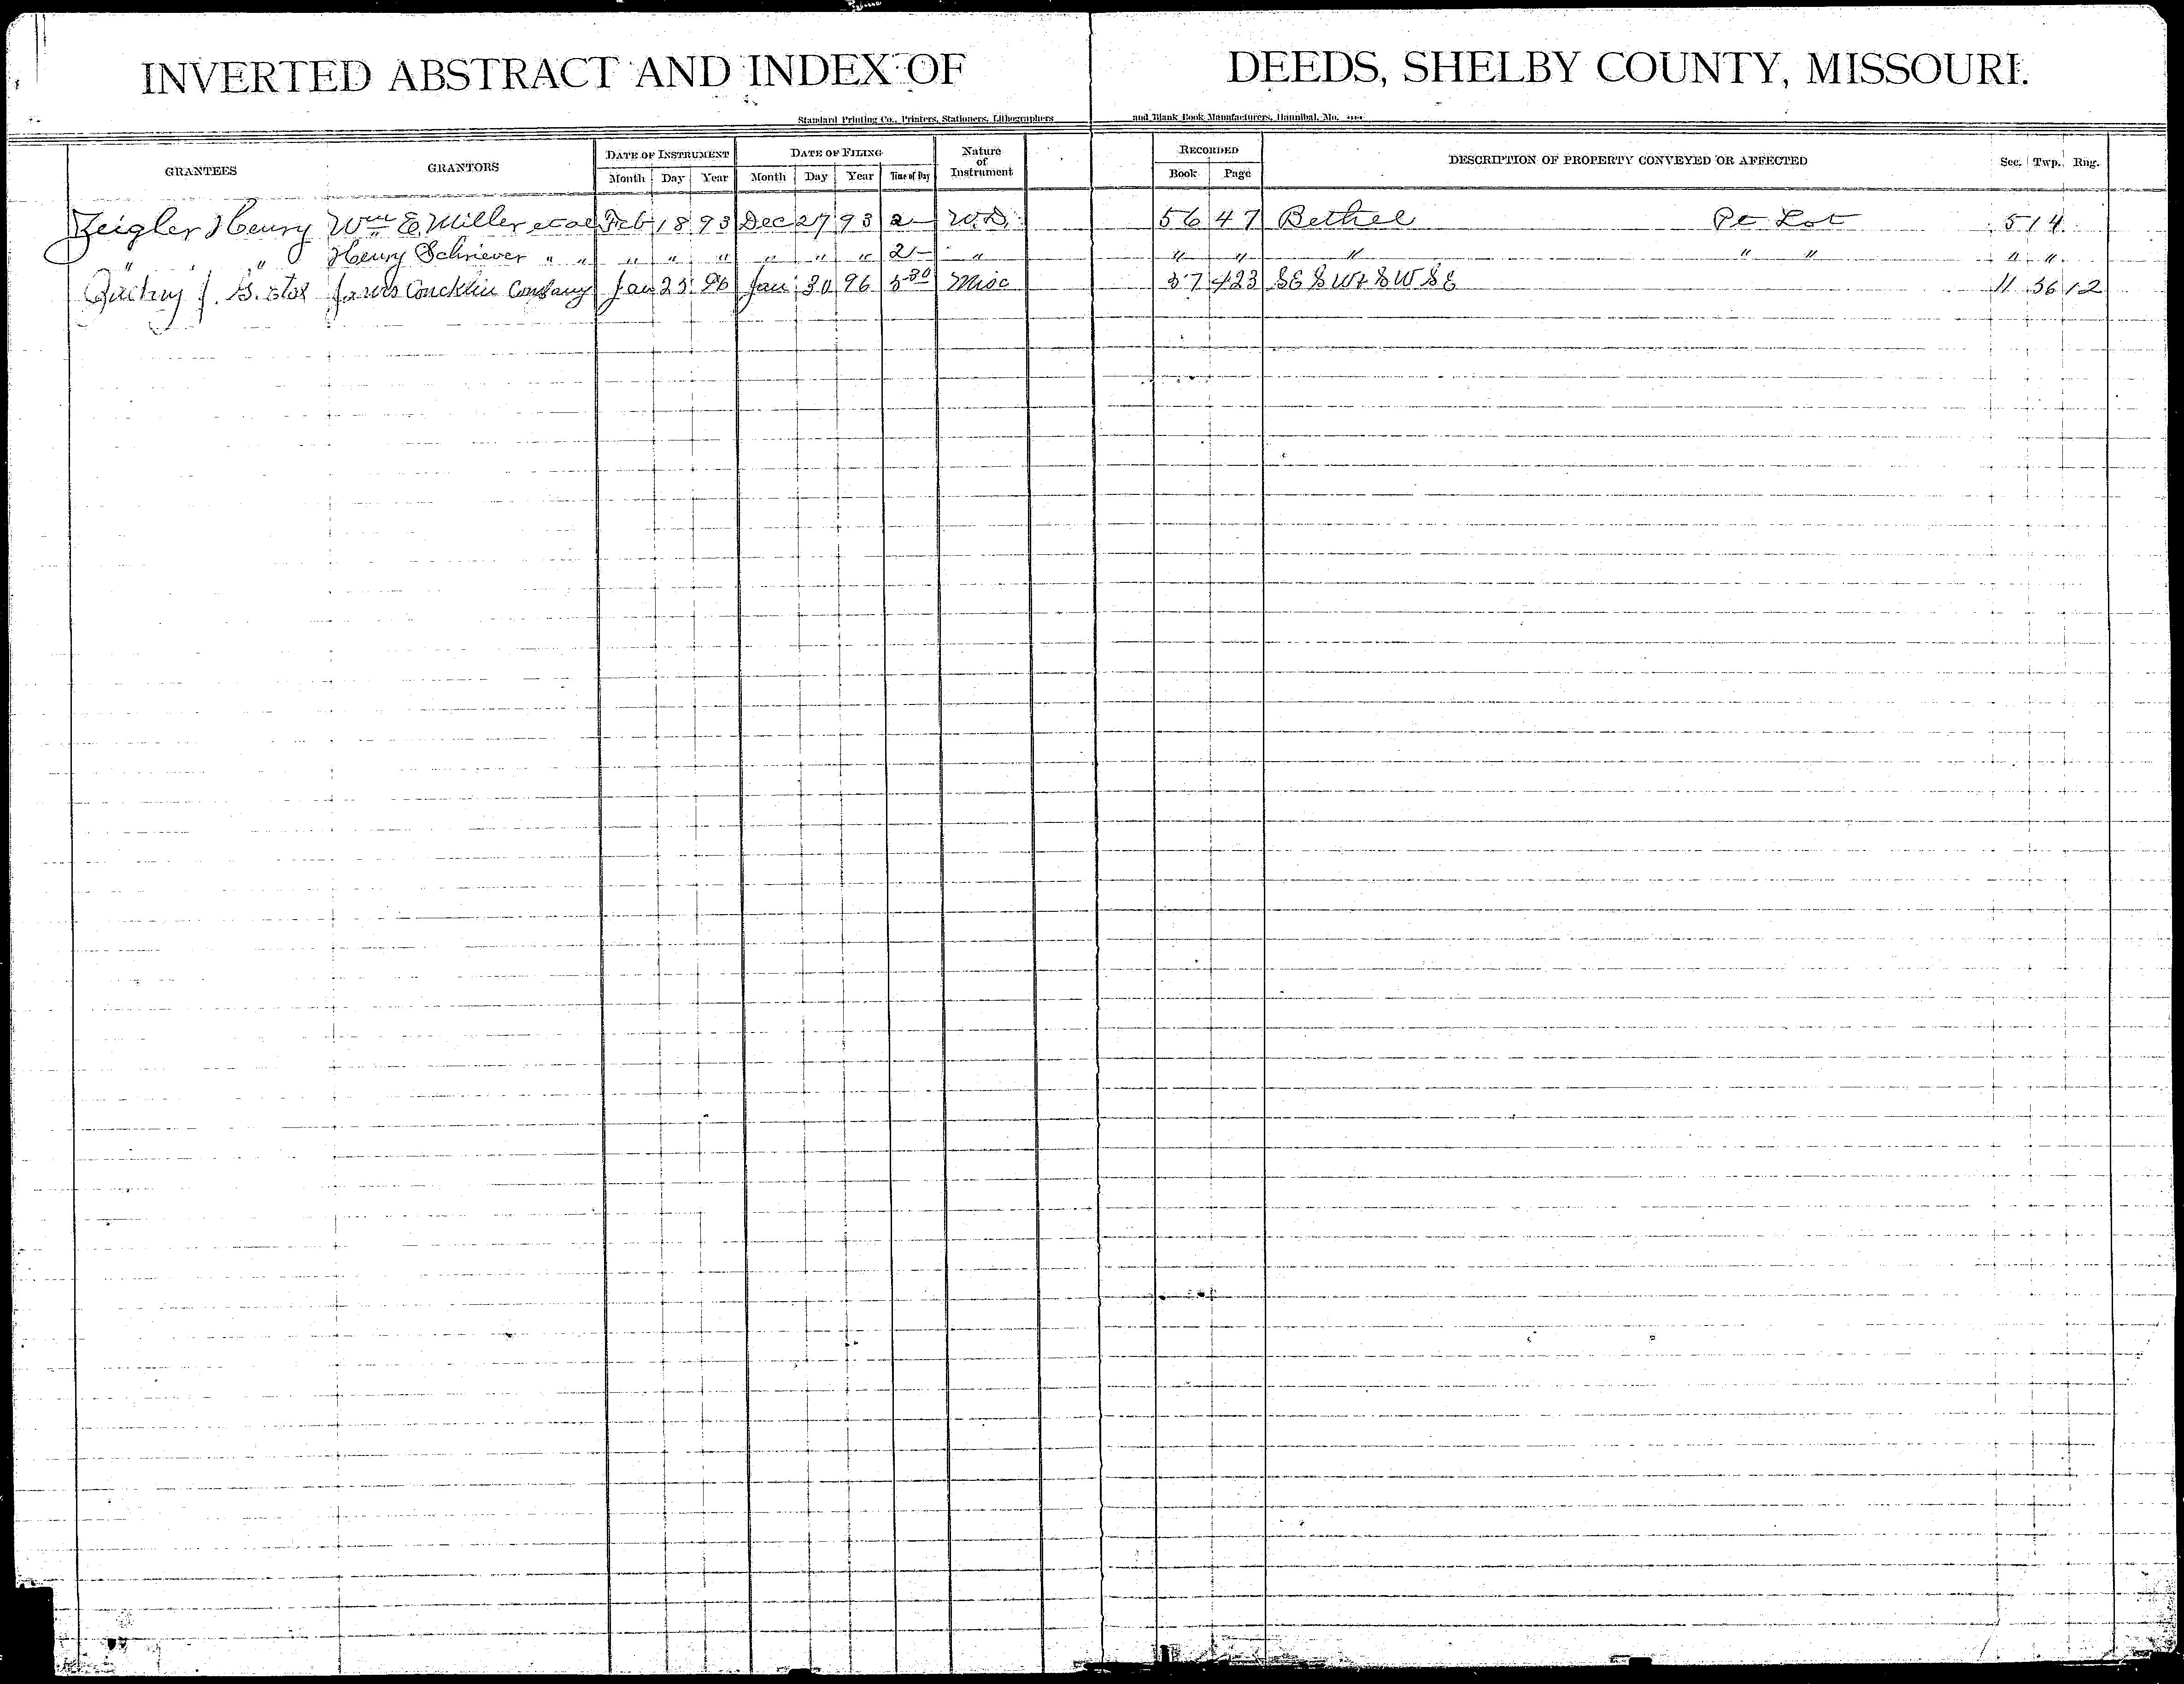 INVERTED ABSTRACT AND INDEX OF DEEDS, SHELBY COUNTY, MISSOURI.
Standard Printing Co., Printers, Stationers, Lithographers and Blank Book Manufacturers, Hannibal, Mo.
GRANTEES GRANTORS DATE OF INSTRUMENT DATE OF FILING Nature of Instrument RECORDED DESCRIPTION OF PROPERTY CONVEYED OR AFFECTED Sec. Twp. Rng.
Month Day Year Month Day Year Time of Day Book Page
Zeigler Henry Wm E. Miller et al Feb 18 93 Dec 27 93 2 W.D. 56 47 Bethel Pt Lot 5 14
" " Henry Schriever " " " " " " " " 2 " " " " " " " "
J. S. et al Conchlin Company Jan 25 96 Jan 30 96 5 30 Misc 57 423 SE SW & SW SE 11 56 12